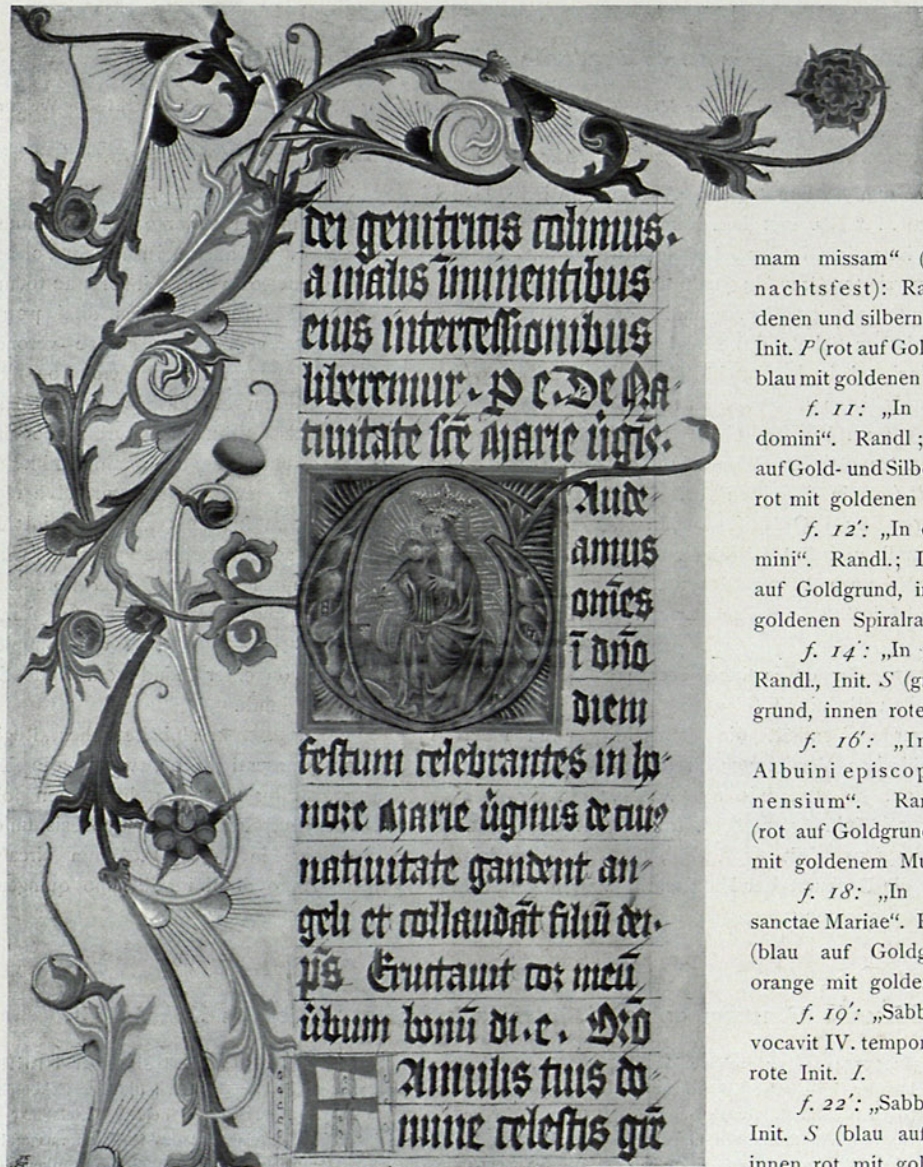 dei genitricis colimus.
a malis īminentibus
eius intercessionibus
liberemur. P e. De Na⸗
tiuitate scē Marie v̉gīs.
GAude⸗
amus
om̄es
ī dn̄o
diem
festum celebrantes in ho⸗
nore Marie v̉ginis de cuiꝰ
natiuitate gaudent an⸗
geli et collaudāt filiū dei.
p̄s Eructauit cor meū
v̉bum bonū di. c. Oro
FAmulis tuis do⸗
mine celestis grē
mam missam“ (
nachtsfest): Ra
denen und silbern
Init. P (rot auf Gol
blau mit goldenen
f. 11: „In
domini“. Randl ;
auf Gold- und Silb
rot mit goldenen
f. 12′: „In
mini“. Randl.; I
auf Goldgrund, in
goldenen Spiralra
f. 14′: „In
Randl., Init. S (g
grund, innen rote
f. 16′: „In
Albuini episcop
nensium“. Ran
(rot auf Goldgrun
mit goldenem Mu
f. 18: „In
sanctae Mariae“. I
(blau auf Goldg
orange mit golde
f. 19′: „Sabb
vocavit IV. tempor
rote Init. I.
f. 22′: „Sabb
Init. S (blau auf
innen rot mit gol